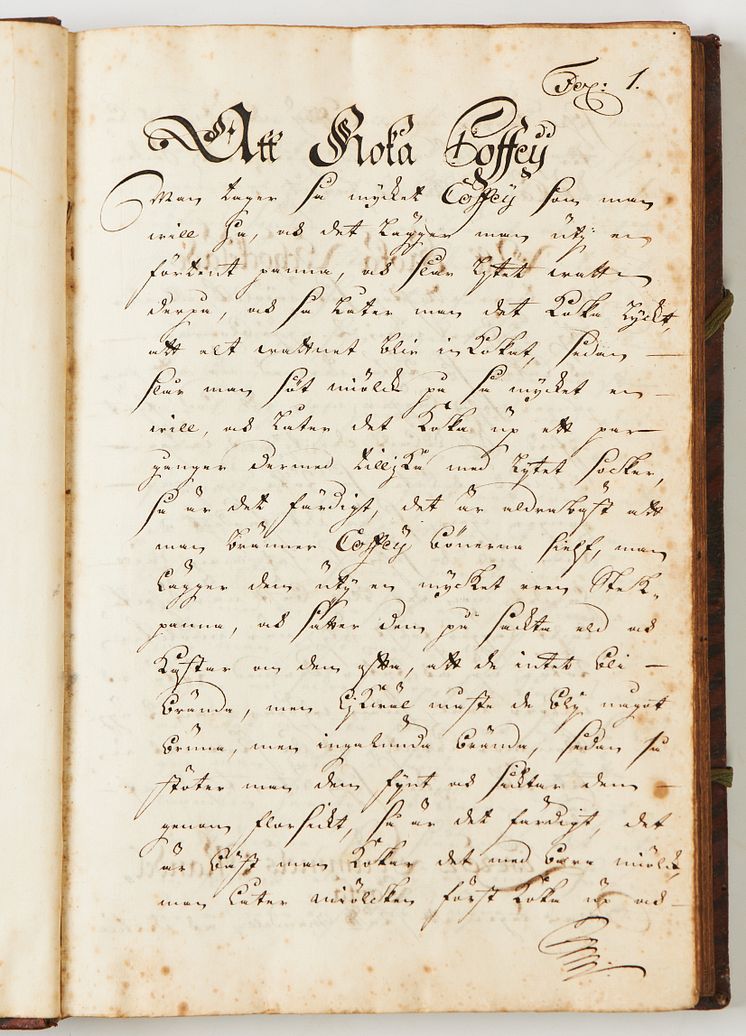 Pag: 1.
Att Koka Coffeÿ
Man tager så mycket Coffeÿ som man
will ha, och det lägger man utÿ en
förtent panna, och slår lÿtet wattn
derpå, och så låter man det Koka
att alt wattnet blir in Kokat, sedan
slår man söt miölck på så mycket en
will, och låter det Koka up ett par
gånger dermed med lÿtet socker,
så är det färdigt, det är aldrabäst att
man bränner Coffeÿ bönerna sielf, man
lägger dem utÿ en mycket reen Stek-
panna, och sätter dem på sackta eld och
Kastar om dem ofta, att de intet bli
brända, men likwäl måste de blÿ något
bruna, men ingalunda brända, sedan så
stöter man dem fÿnt och sicktar dem
genom florsickt, så är det färdigt, det
är bäst man Kokar det med bara miölck,
man låter miölcken först Koka up och